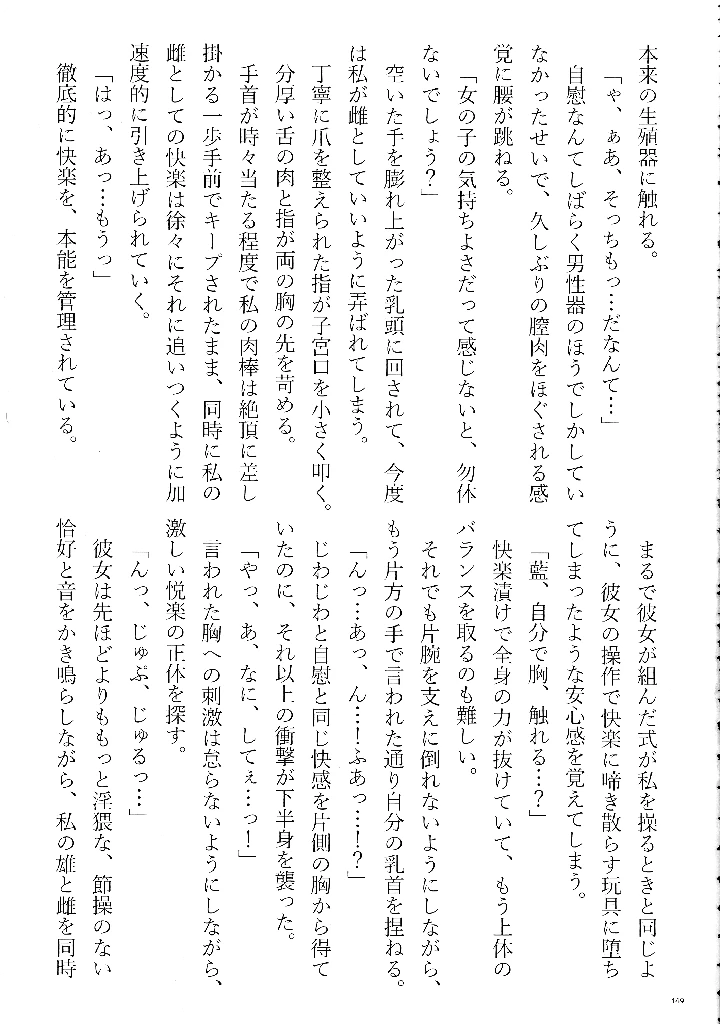 本来の生殖器に触れる。
「ゃ、ぁあ、そっちもっ…だなんて…」
自慰なんてしばらく男性器のほうでしかしてい
なかったせいで、久しぶりの膣肉をほぐされる感
覚に腰が跳ねる。
「女の子の気持ちよさだって感じないと、勿体
ないでしょう?」
空いた手を膨れ上がった乳頭に回されて、今度
は私が雌としていいように弄ばれてしまう。
丁寧に爪を整えられた指が子宮口を小さく叩く。
分厚い舌の肉と指が両の胸の先を苛める。
手首が時々当たる程度で私の肉棒は絶頂に差し
掛かる一歩手前でキープされたまま、同時に私の
雌としての快楽は徐々にそれに追いつくように加
速度的に引き上げられていく。
「はっ、あっ…もうっ」
徹底的に快楽を、本能を管理されている。
まるで彼女が組んだ式が私を操るときと同じよ
うに、彼女の操作で快楽に啼き散らす玩具に堕ち
てしまったような安心感を覚えてしまう。
「藍、自分で胸、触れる…?」
快楽漬けで全身の力が抜けていて、もう上体の
バランスを取るのも難しい。
それでも片腕を支えに倒れないようにしながら、
もう片方の手で言われた通り自分の乳首を捏ねる。
「んっ…あっ、ん…!ふあっ…!?」
じわじわと自慰と同じ快感を片側の胸から得て
いたのに、それ以上の衝撃が下半身を襲った。
「やっ、あ、なに、してぇ…っ!」
言われた胸への刺激は怠らないようにしながら、
激しい悦楽の正体を探す。
「んっ、じゅぷ、じゅるっ…」
彼女は先ほどよりももっと淫猥な、節操のない
恰好と音をかき鳴らしながら、私の雄と雌を同時
149